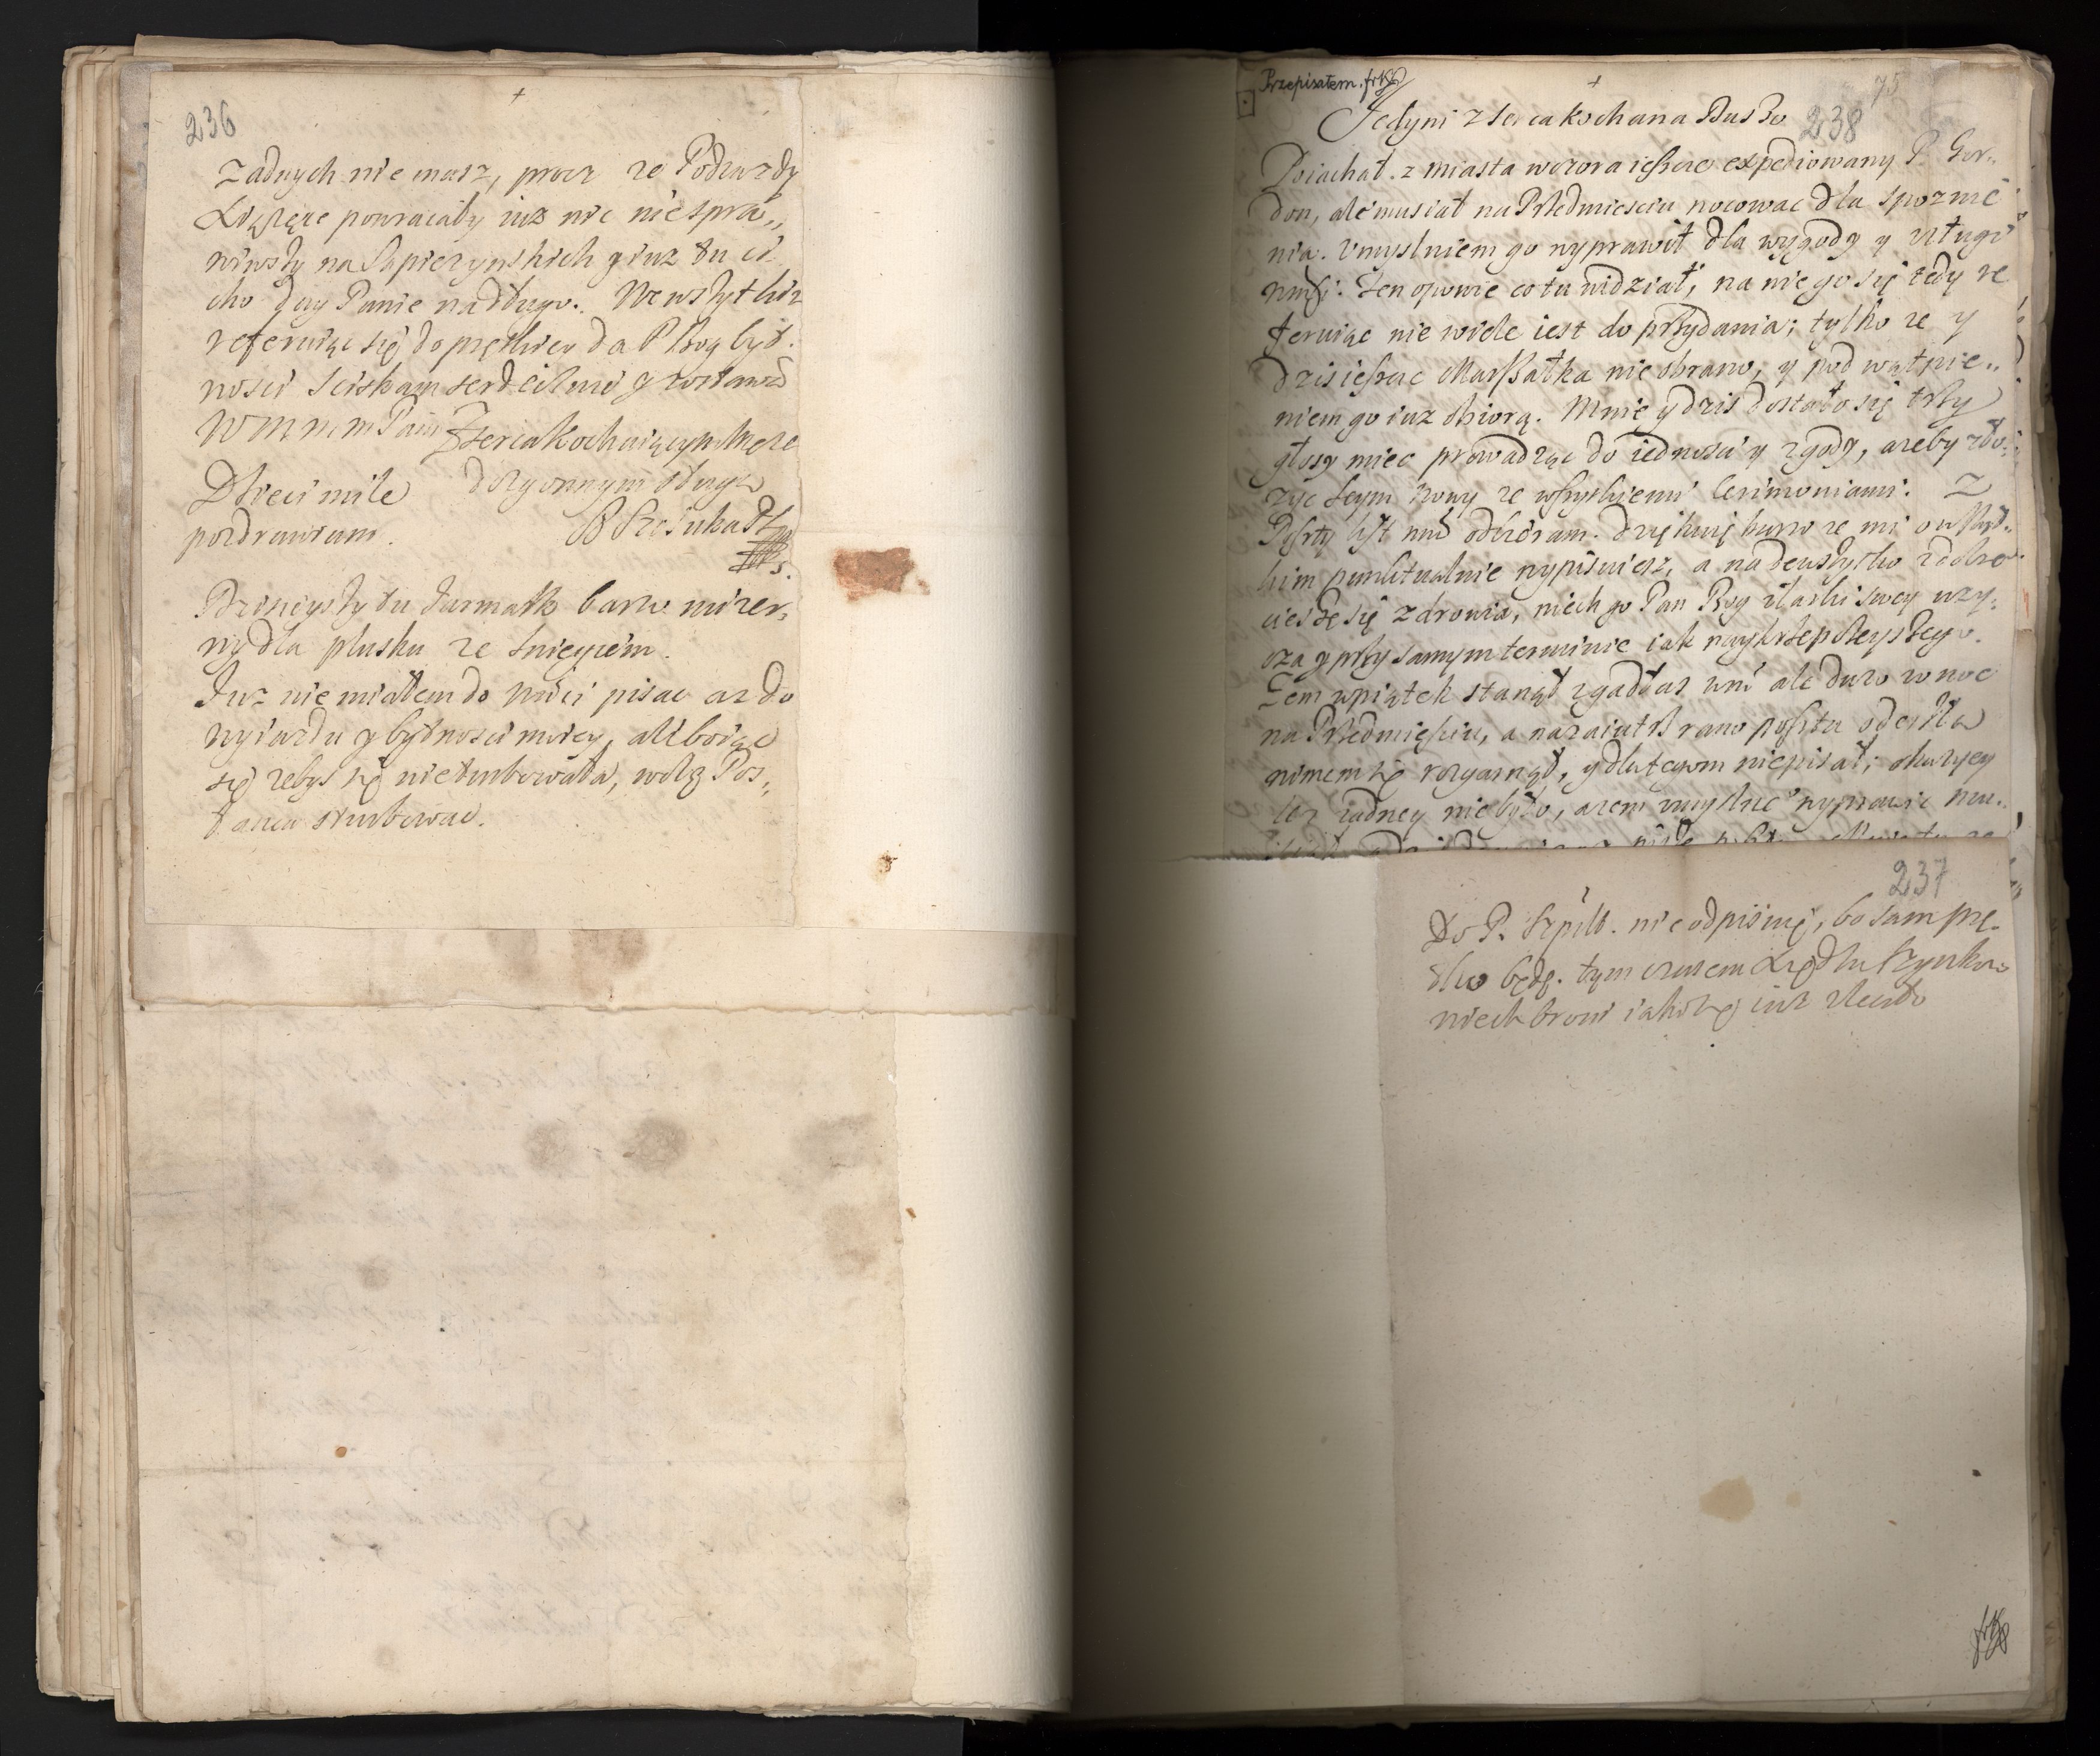 236
+
Zadnych nie masz, procz ze Podiazdy
Xiążęce powracaiby iuz nic nie spra„
wiwszy na Sapiezynskich y iuz tu ci
cho day Panie nadługo. We wszytkiz
referuiąc się do prętkiey da P Bog byt.
nosci sciskam serdecznie y zostawam
Wmmm Pani Zserca kochaiącym Męze
Dzieci mile dozgonnym sługą
pozdrawiam.
Dzisieyszy tu Jarmark barzo mizer„
ny dla plusku ze sniegiem.
Juz nie miałem do mosci pisac az do
wyiazdu y bytnosci moiey, ale boiąc
się zebys się nieturbowała, wolę Pos„
łanca sturbowac.
Przepisałem.
+
75
238
Jedyni z serca kochana Duszo
Poiachał z miasta wczora ieszcze expediowany P. Gor„
don, ale musiał na Przedmiesciu nocowac dla spoznie
nia. Umyslniem go wyprawił dla wygody y usługi
Ten opowie co tu widział, na niego się tedy re
feruiąc nie wiele iest do przydania; tylko ze y
dzis ieszcze Marszałka nie obrano, y pod wątpie„
niem go iuz obiorą. Mnie y dzis dostało się trzy
głosy miec prowadząc do iednosci y zgody, azeby złо„
zyc seym nowy ze wszystkiemi Cerimoniami. Z
Poszty list odbieram. dziękuię barzo ze mi o wszyt„
kim punktualnie wypisuiesz, a nadewszytko z dobre„
cieszę się zdrowia, niech go Pan Bog z łaski swey uzy„
cza y przy samym terminie iak naykrzepszeyszego.
Zem w piątek stanął zgadłas ale duzo w noc
na Przedmiesciu, a nazaiutrz rano poszta odeszła
nimem się rozgarnął, y dlategom niepisał; okazyey
tez zadney nie było, azem umyslnie wyprawic mu„
237
Do P. Szpilb. nie odpisuię, bo sam prę„
tko będę. tym czasem Xiędza Szynko„
niech broni iako się iuz zleciło